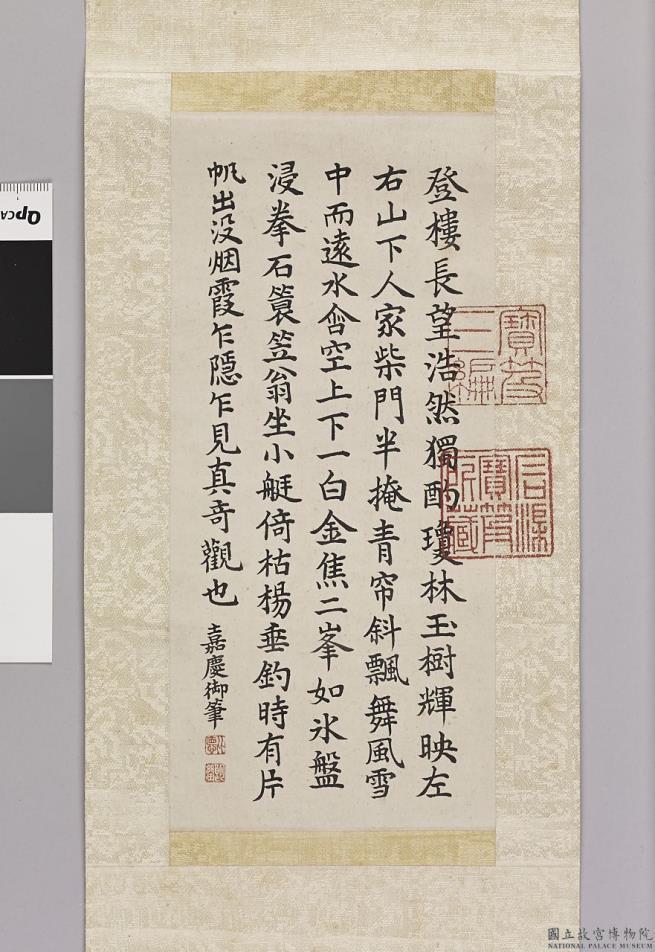 登樓長望浩然獨酌瓊林玉樹輝映左
右山下人家柴門半掩青帘斜飄舞風雪
中而遠水含空上下一白金焦二峯如氷盤
浸拳石簑笠翁坐小艇倚枯楊垂釣時有片
帆出没烟霞乍隱乍見真奇觀也
嘉慶御筆
寶笈
三編
石渠
寶笈
所藏
國立故宮博物院
NATIONAL PALACE MUSEUM